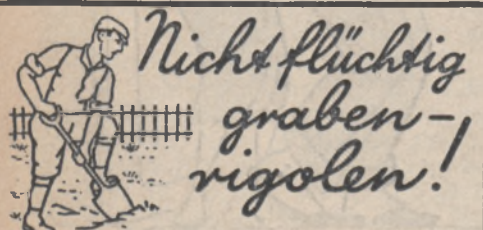 Nicht flüchtig
graben –
rigolen!